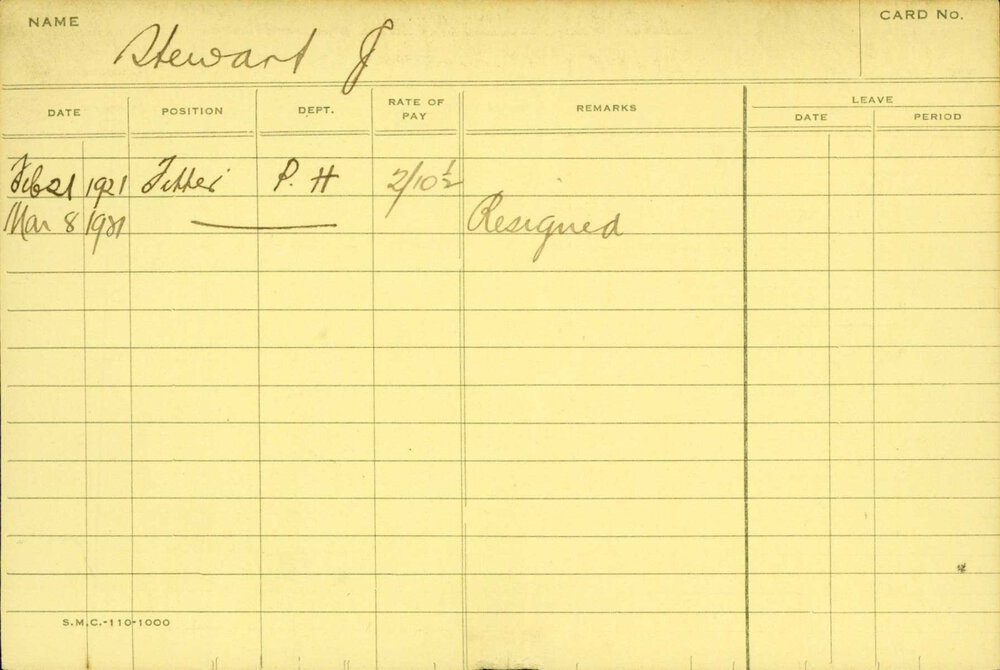 NAME Stewart J CARD No.
DATE POSITION DEPT. RATE OF PAY REMARKS LEAVE
DATE PERIOD
Feb 21 1921 Fitter P. H 2/10 ½
Mar 8 1921 Resigned
S.M.C.-110-1000